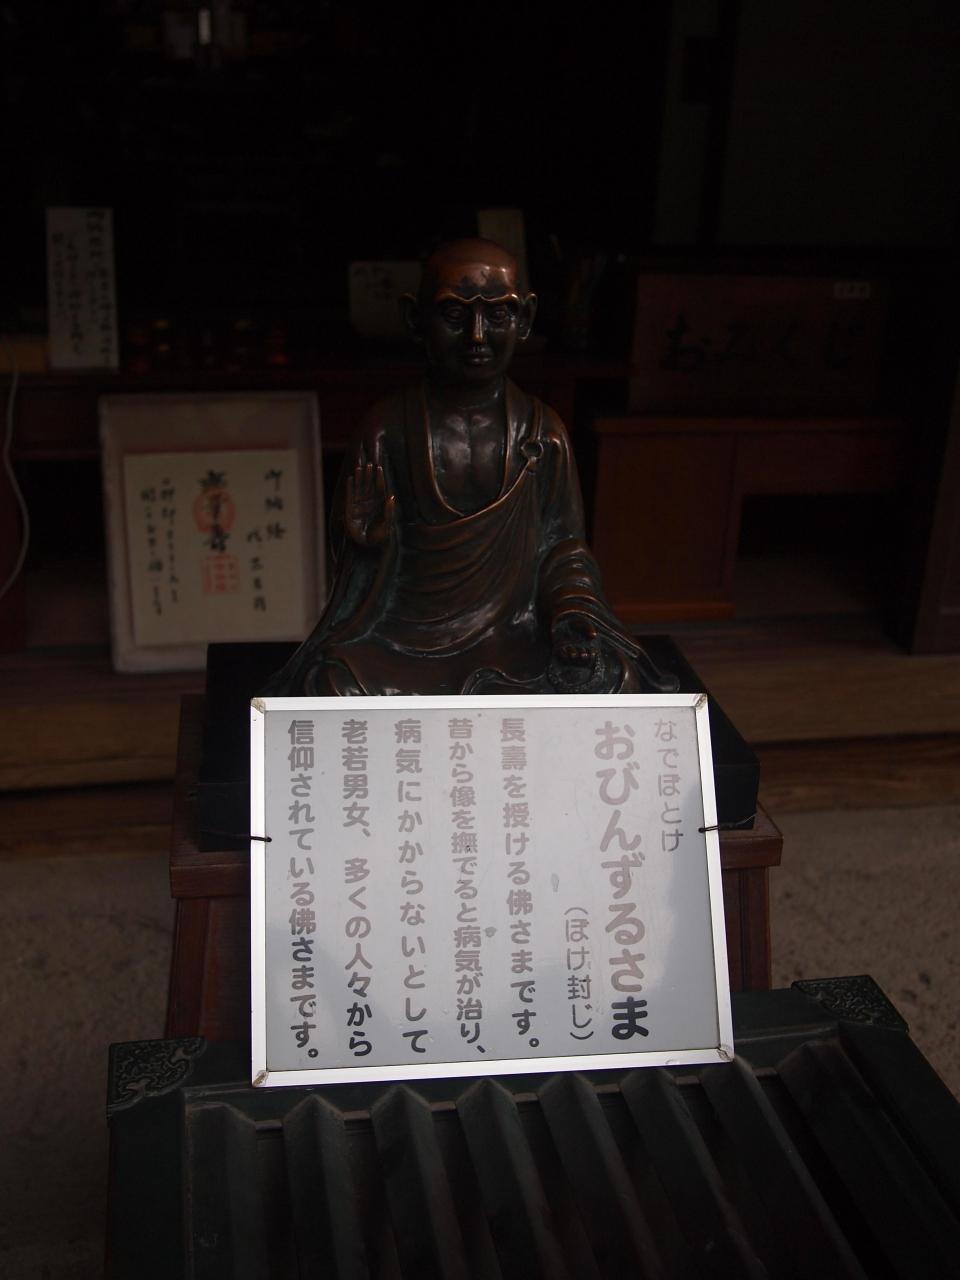 なでぼとけ
おびんずるさま
（ぼけ封じ）
長壽を授ける佛さまです。
昔から像を撫でると病気が治り、
病気にかからないとして
老若男女、多くの人々から
信仰されている佛さまです。
おみくじ
御納経